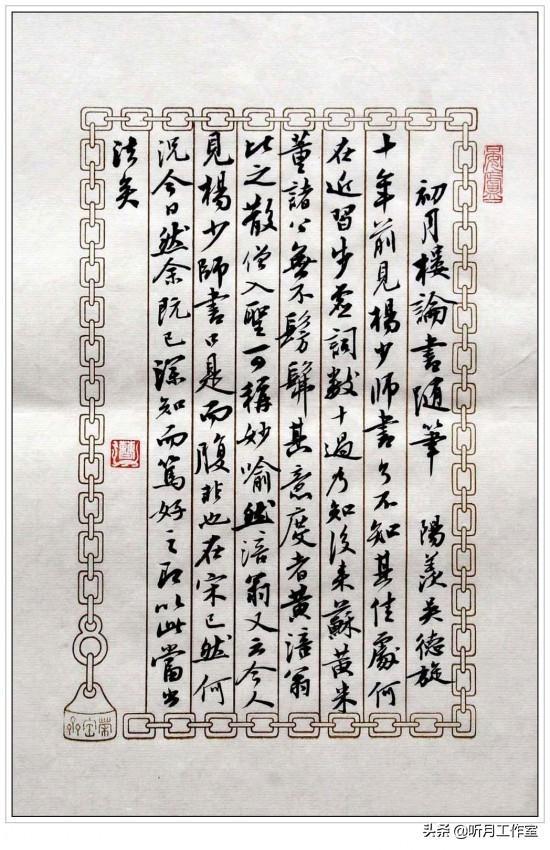 初月樓論書隨筆 陽羨吳德旋
十年前見楊少師書了不知其佳處何
在近習步虛詞數十過乃知後來蘇黃米
董諸公無不髣髴其意度者黃涪翁
比之散僧入聖可稱妙喻然涪翁又云今人
見楊少師書口是而腹非也在宋已然何
況今日然余既已深知而篤好之即以此當出
法矣
头条 @听月工作室